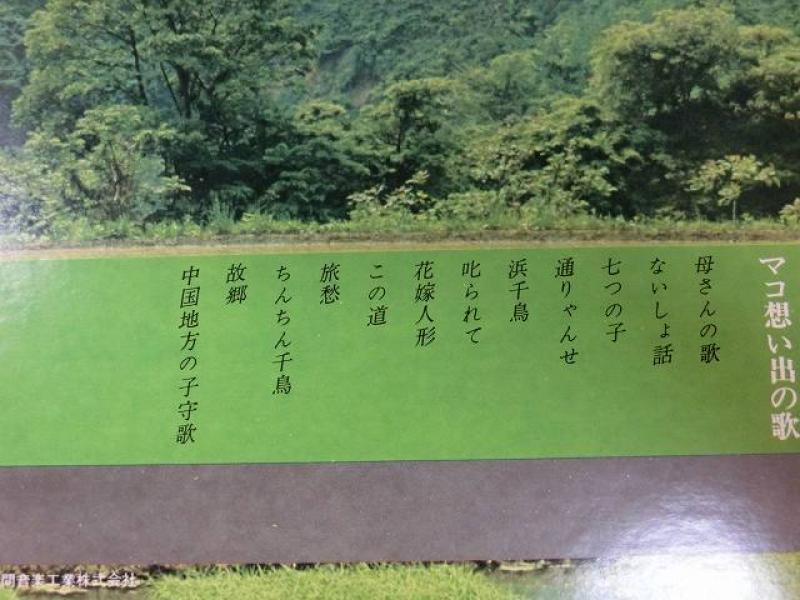 マコ想い出の歌
母さんの歌
ないしょ話
七つの子
通りゃんせ
浜千鳥
叱られて
花嫁人形
この道
旅愁
ちんちん千鳥
故郷
中国地方の子守歌
間音楽工業株式会社